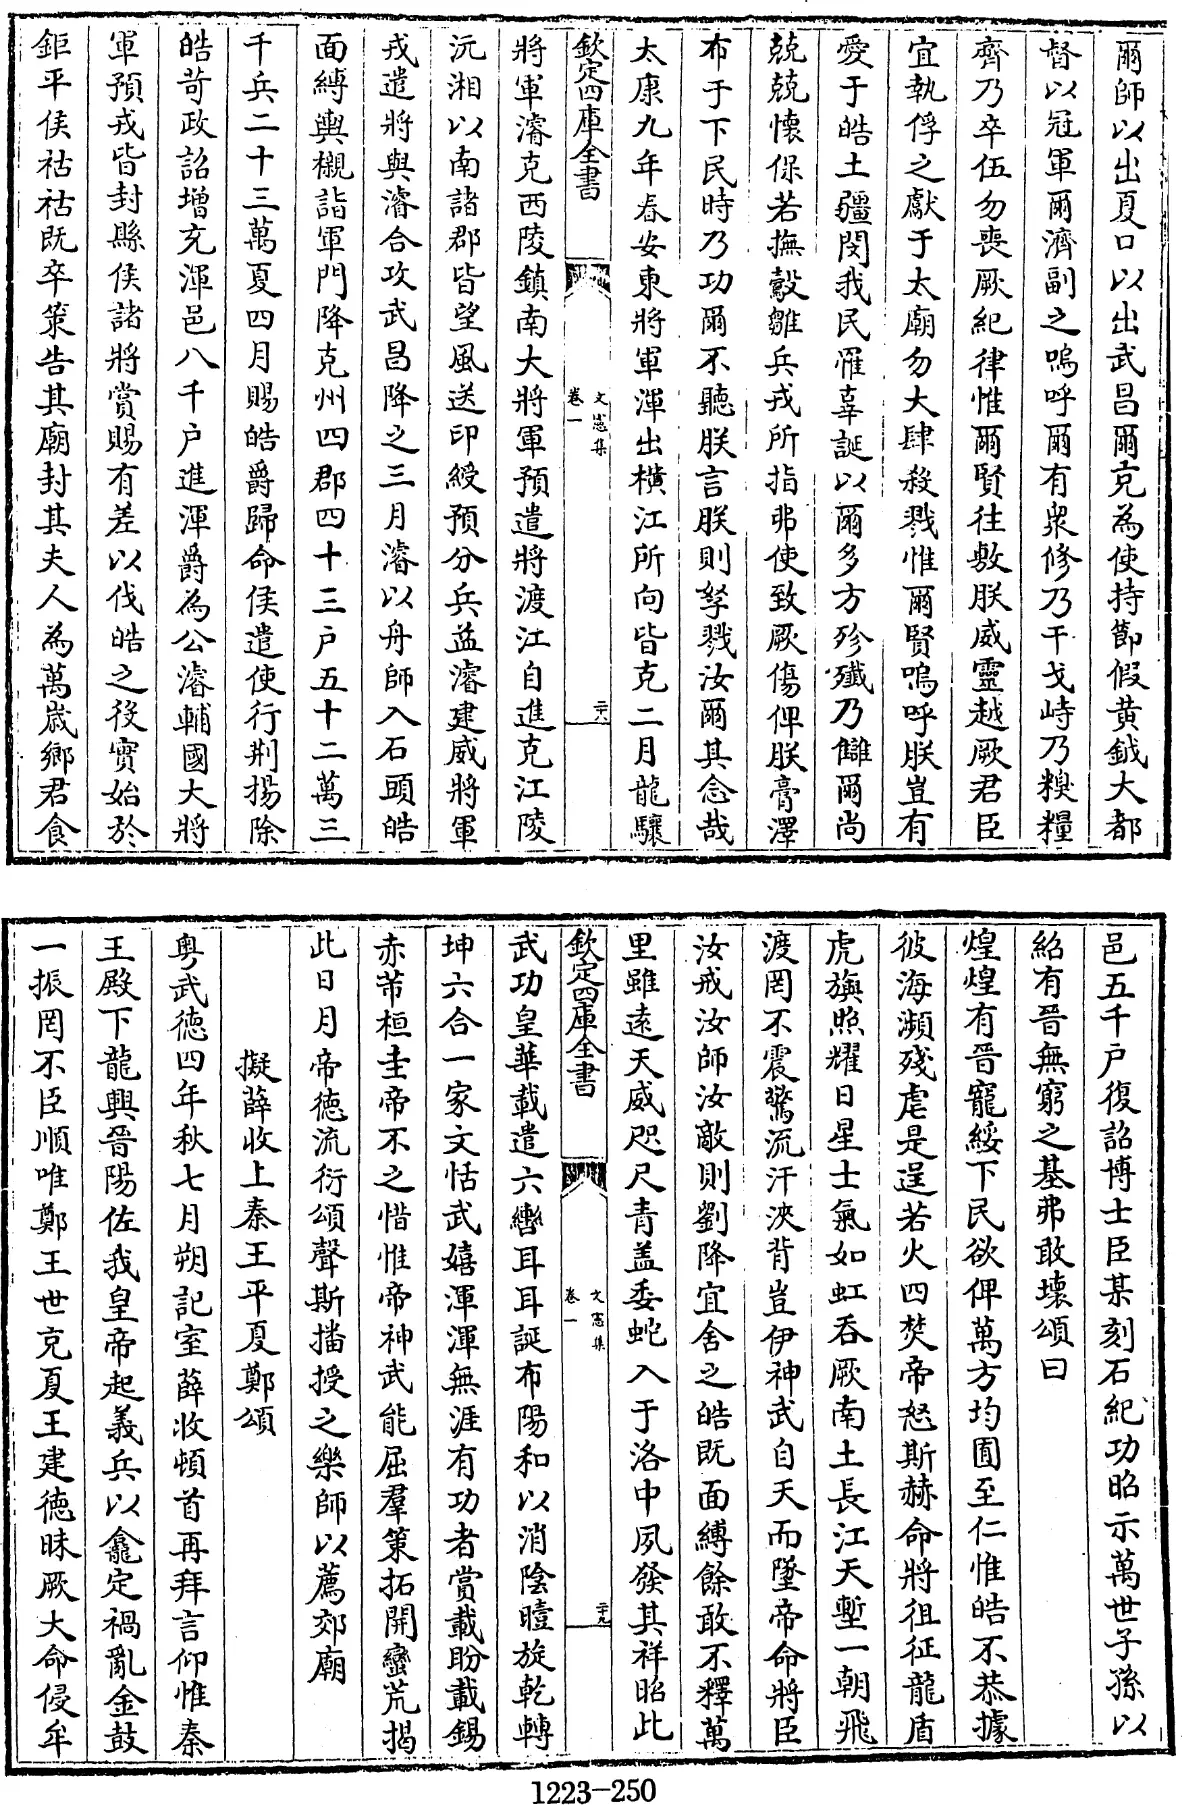 爾師以出夏口以出武昌爾克為使持節假黄鉞大都
督以冠軍爾濟副之嗚呼爾有衆修乃干戈峙乃糗糧
齊乃卒伍勿喪厥紀律惟爾賢往敷朕威靈越厥君臣
宜執俘之獻于太廟勿大肆殺戮惟爾賢嗚呼朕豈有
愛于皓土疆閔我民罹辜誕以爾多方殄殲乃讎爾尚
兢兢懷保若撫鷇雛兵戎所指弗使致厥傷俾朕膏澤
布于下民時乃功爾不聽朕言朕則孥戮汝爾其念哉
太康九年春安東將軍渾出横江所向皆克二月龍驤
欽定四庫全書
文憲集
卷一
二十八
將軍濬克西陵鎮南大將軍預遣將渡江自進克江陵
沅湘以南諸郡皆望風送印綬預分兵益濬建威將軍
戎遣將與濬合攻武昌降之三月濬以舟師入石頭皓
面縛輿櫬詣軍門降克州四郡四十三户五十二萬三
千兵二十三萬夏四月賜皓爵歸命侯遣使行荆揚除
皓苛政詔增充渾邑八千户進渾爵為公濬輔國大將
軍預戎皆封縣侯諸將賞賜有差以伐皓之役實始於
鉅平侯祜祜既卒策告其廟封其夫人為萬嵗鄉君食
邑五千户復詔博士臣某刻石紀功昭示萬世子孫以
紹有晉無窮之基弗敢壞頌曰
煌煌有晉寵綏下民欲俾萬方均囿至仁惟皓不恭據
彼海瀕殘虐是逞若火四焚帝怒斯赫命將徂征龍盾
虎旟照耀日星士氣如虹吞厥南土長江天塹一朝飛
渡罔不震驚流汗浹背豈伊神武自天而墜帝命將臣
汝戒汝師汝敵則劉降宜舍之皓既面縛餘敢不釋萬
里雖遠天威咫尺青盖委蛇入于洛中夙發其祥昭此
欽定四庫全書
文憲集
卷一
二十九
武功皇華載遣六轡耳耳誕布陽和以消陰曀旋乾轉
坤六合一家文恬武嬉渾渾無涯有功者賞載盼載錫
赤芾桓圭帝不之惜惟帝神武能屈羣策拓開蠻荒揭
此日月帝德流衍頌聲斯播授之樂師以薦郊廟
擬薛收上秦王平夏鄭頌
粤武德四年秋七月朔記室薛收頓首再拜言仰惟秦
王殿下龍興晉陽佐我皇帝起義兵以龕定禍亂金鼓
一振罔不臣順唯鄭王世充夏王建德昧厥大命侵牟
1223-250